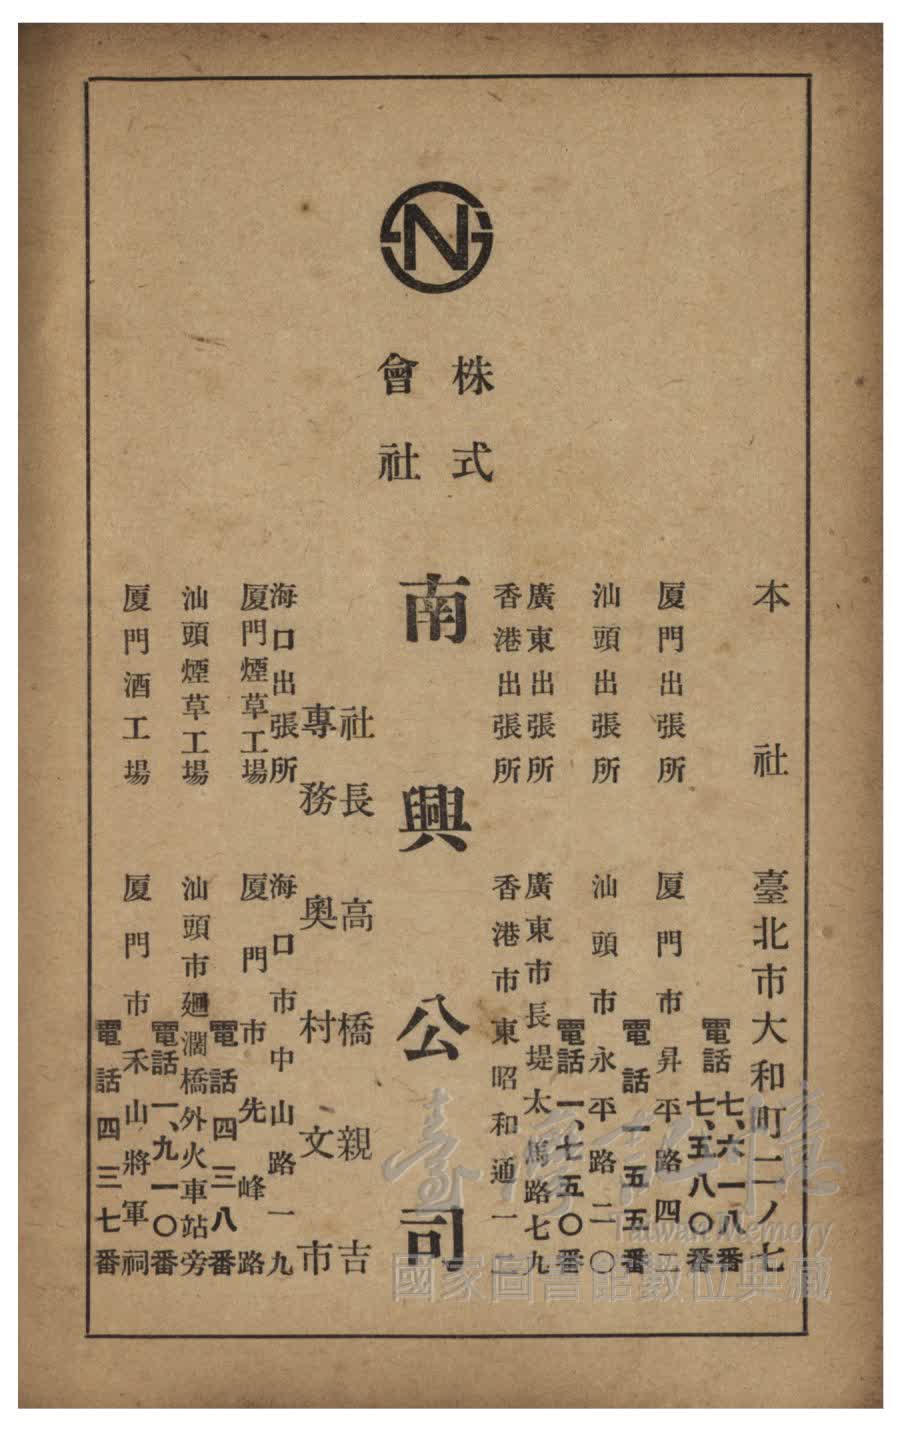 本社 臺北市大和町二ノ七
電話 七、六一八番
七、五八〇番
厦門出張所 厦門市昇平路四二
電話 一五五番
汕頭出張所 汕頭市永平路二〇
電話 一、七五〇番
廣東出張所 廣東市長堤太馬路七九
香港出張所 香港市東昭和通一二
SN
株式
會社
南興公司
社長 高橋親吉
專務 奧村文市
海口出張所 海口市中山路一九
厦門煙草工場 厦門市先峰路
電話 四三八番
汕頭煙草工場 汕頭市廻瀾橋外火車站旁
電話 一、九一〇番
厦門酒工場 厦門市禾山將軍祠
電話 四三七番
臺灣記憶
Taiwan Memory
國家圖書館數位典藏